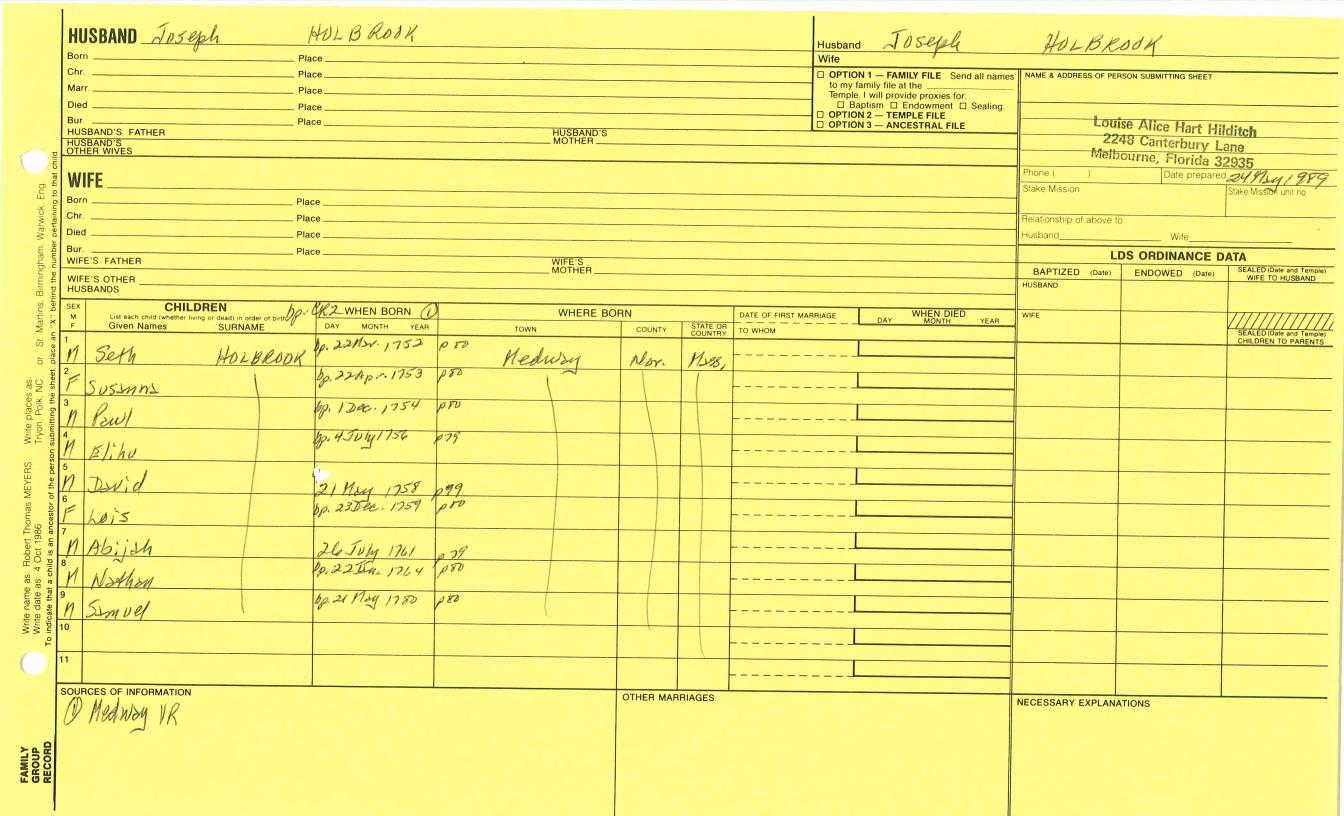 HUSBAND Joseph HOLBROOK
Born Place
Chr. Place
Marr. Place
Died Place
Bur. Place
HUSBAND'S FATHER HUSBAND'S MOTHER
HUSBAND'S OTHER WIVES
Husband Joseph HOLBROOK
Wife
☐ OPTION 1 — FAMILY FILE Send all names
to my family file at the
Temple. I will provide proxies for:
☐ Baptism ☐ Endowment ☐ Sealing
☐ OPTION 2 — TEMPLE FILE
☐ OPTION 3 — ANCESTRAL FILE
NAME & ADDRESS OF PERSON SUBMITTING SHEET
Louise Alice Hart Hilditch
2248 Canterbury Lane
Melbourne, Florida 32935
Phone ( ) Date prepared 24 May 1989
Stake Mission Stake Mission unit no.
Relationship of above to
Husband Wife
WIFE
Born Place
Chr. Place
Died Place
Bur. Place
WIFE'S FATHER WIFE'S MOTHER
WIFE'S OTHER HUSBANDS
LDS ORDINANCE DATA
BAPTIZED (Date) ENDOWED (Date) SEALED (Date and Temple) WIFE TO HUSBAND
HUSBAND
WIFE
SEALED (Date and Temple) CHILDREN TO PARENTS
SEX M F
CHILDREN
List each child (whether living or dead) in order of birth
Given Names SURNAME
bp. CR2 WHEN BORN ①
DAY MONTH YEAR
WHERE BORN
TOWN COUNTY STATE OR COUNTRY
DATE OF FIRST MARRIAGE
TO WHOM
WHEN DIED
DAY MONTH YEAR
1 M Seth HOLBROOK bp. 22 Mar. 1752 p80 Medway Nor. Mass,
2 F Susanna bp. 22 Apr. 1753 p80
3 M Paul bp. 1 Dec. 1754 p80
4 M Elihu bp. 4 July 1756 p79
5 M David 21 May 1758 p79
6 F Lois bp. 23 Dec. 1759 p80
7 M Abijah 26 July 1761 p79
8 M Nathan bp. 22 1764 p80
9 M Samuel bp. 21 May 1780 p80
10
11
SOURCES OF INFORMATION
① Medway VR
OTHER MARRIAGES
NECESSARY EXPLANATIONS
Write name as: Robert Thomas MEYERS Write places as: Tryon, Polk, NC or St. Martins, Birmingham, Warwick, Eng.
Write date as: 4 Oct 1986
To indicate that a child is an ancestor of the person submitting the sheet, place an "X" behind the number pertaining to that child.
FAMILY GROUP RECORD